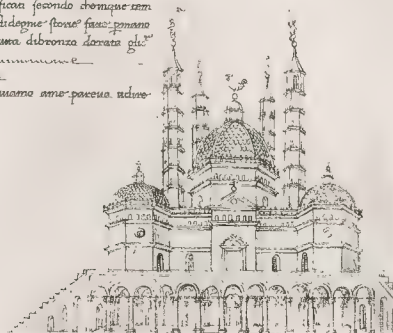 ficati secondo chemque tem
didegne storie fatte pmano
uta dibronzo dorata gli
uiamo ame pareua udire